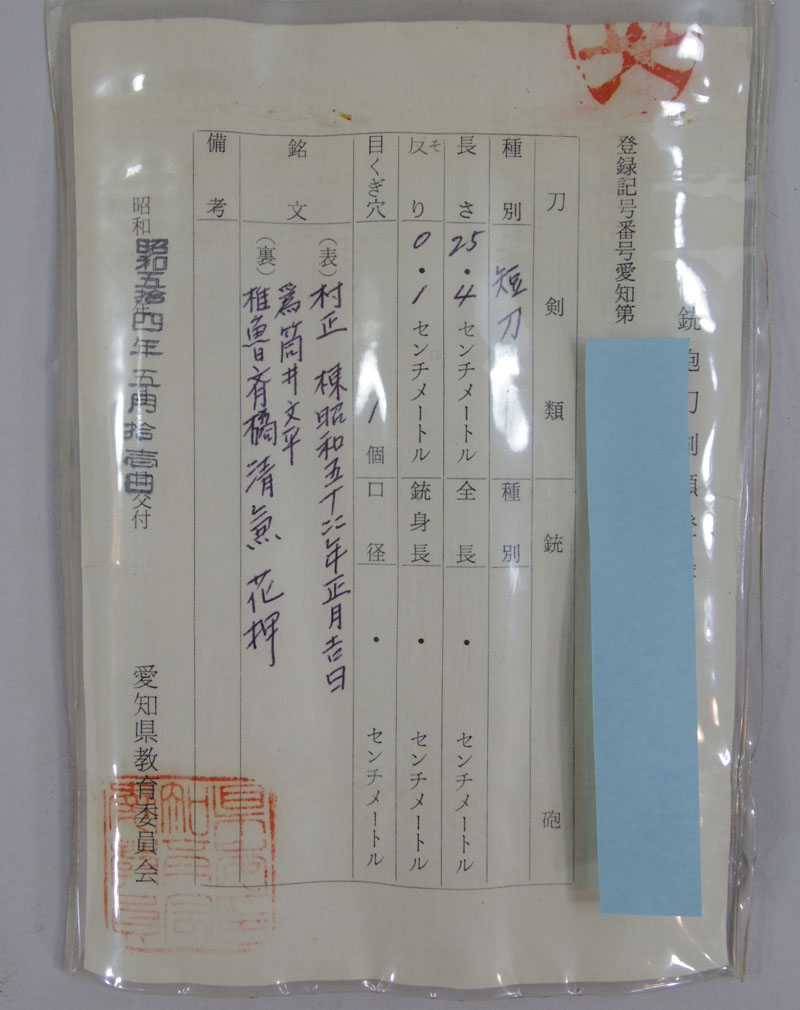 銃砲刀剣類登
登録記号番号愛知第
刀剣類
銃砲
種別 短刀
種別
長さ 25.4センチメートル
全長 ・ センチメートル
反り 0.1センチメートル
そ
銃身長 ・ センチメートル
目くぎ穴 1個
口径 ・ センチメートル
銘文
(表) 村正 棟昭和五十二年正月吉日
為筒井文平
(裏) 椎魯斉橘清 花押
備考
昭和五拾四年五月拾壱日
昭和 年 交付
愛知県教育委員会